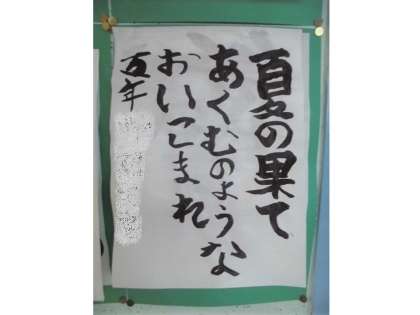 夏の果て
あくむのような
おいこまれ
五年